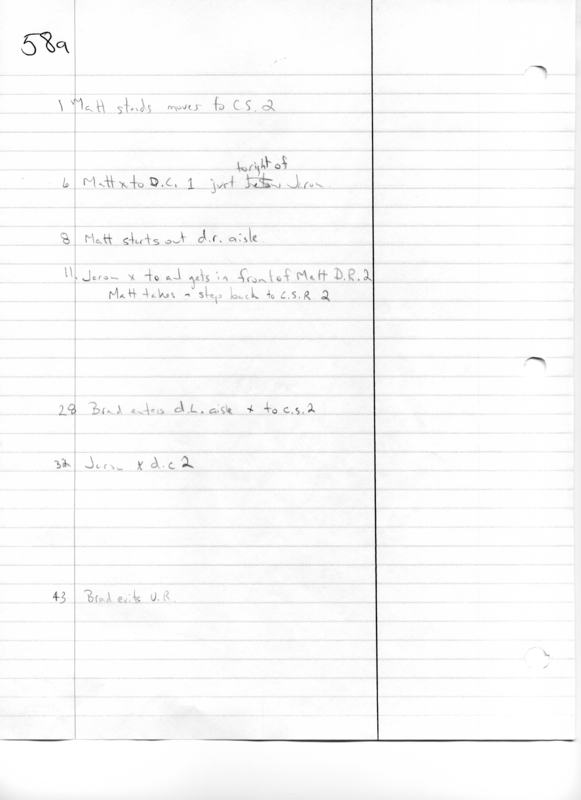 58a
1 Matt stands moves to C.S. 2
to right of
6 Matt x to D.C. 1 just below Jerom
8 Matt starts out d.r. aisle
11. Jerom x to and gets in front of Matt D.R. 2
Matt takes a step back to C.S.R 2
28 Brad enters d.L. aisle x to c.s. 2
32 Jerom x d.c 2
43 Brad exits U.R.